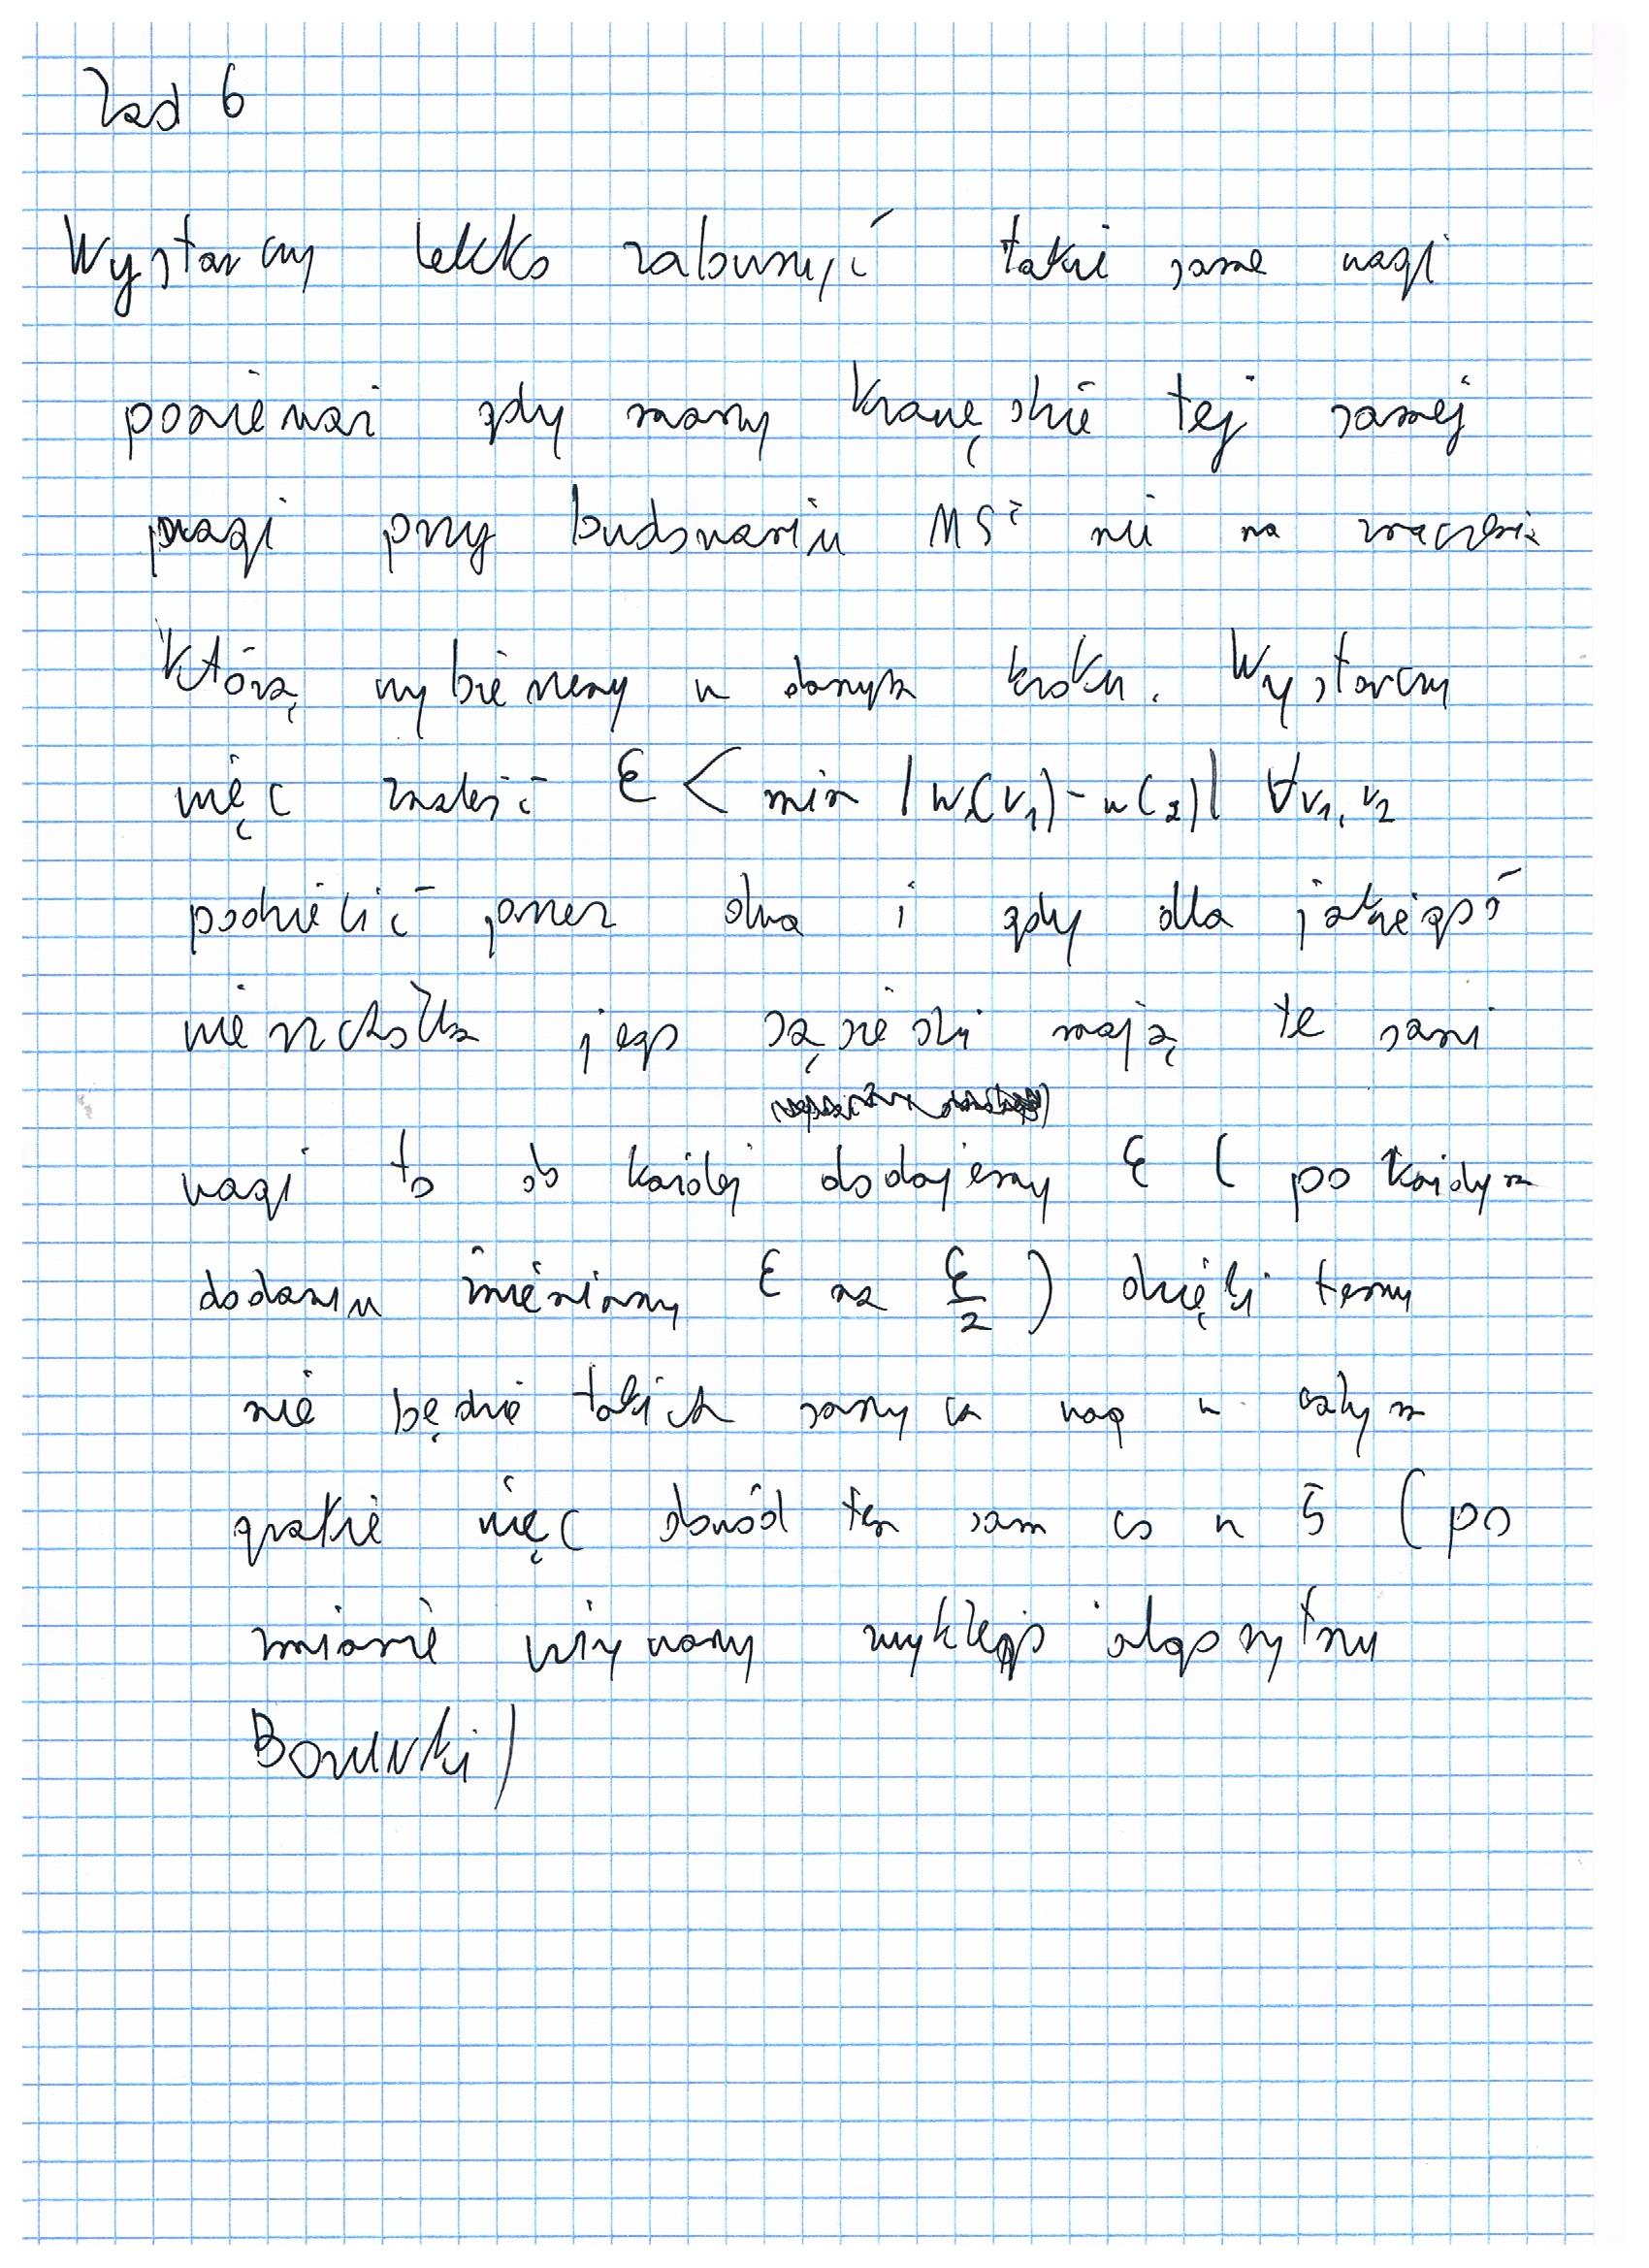 Zad 6
Wystarczy lekko zaburzyć takie same wagi
ponieważ gdy mamy krawędzie tej samej
wagi przy budowaniu MST nie ma znaczenia
którą wybierzemy w danym kroku. Wystarczy
więc znaleźć ε < min |w(v₁) - w(₂)| ∀v₁, v₂
podzielić przez dwa i gdy dla jakiegoś
wierzchołka jego sąsiedzi mają te same
wagi to do każdej dodajemy ε ( po każdym
dodaniu zmienimy ε na ε/2 ) dzięki temu
nie będzie takich samych wag w całym
grafie więc dowód ten sam co w 5 (po
zmianie używamy zwykłego algorytmu
Boruvki)